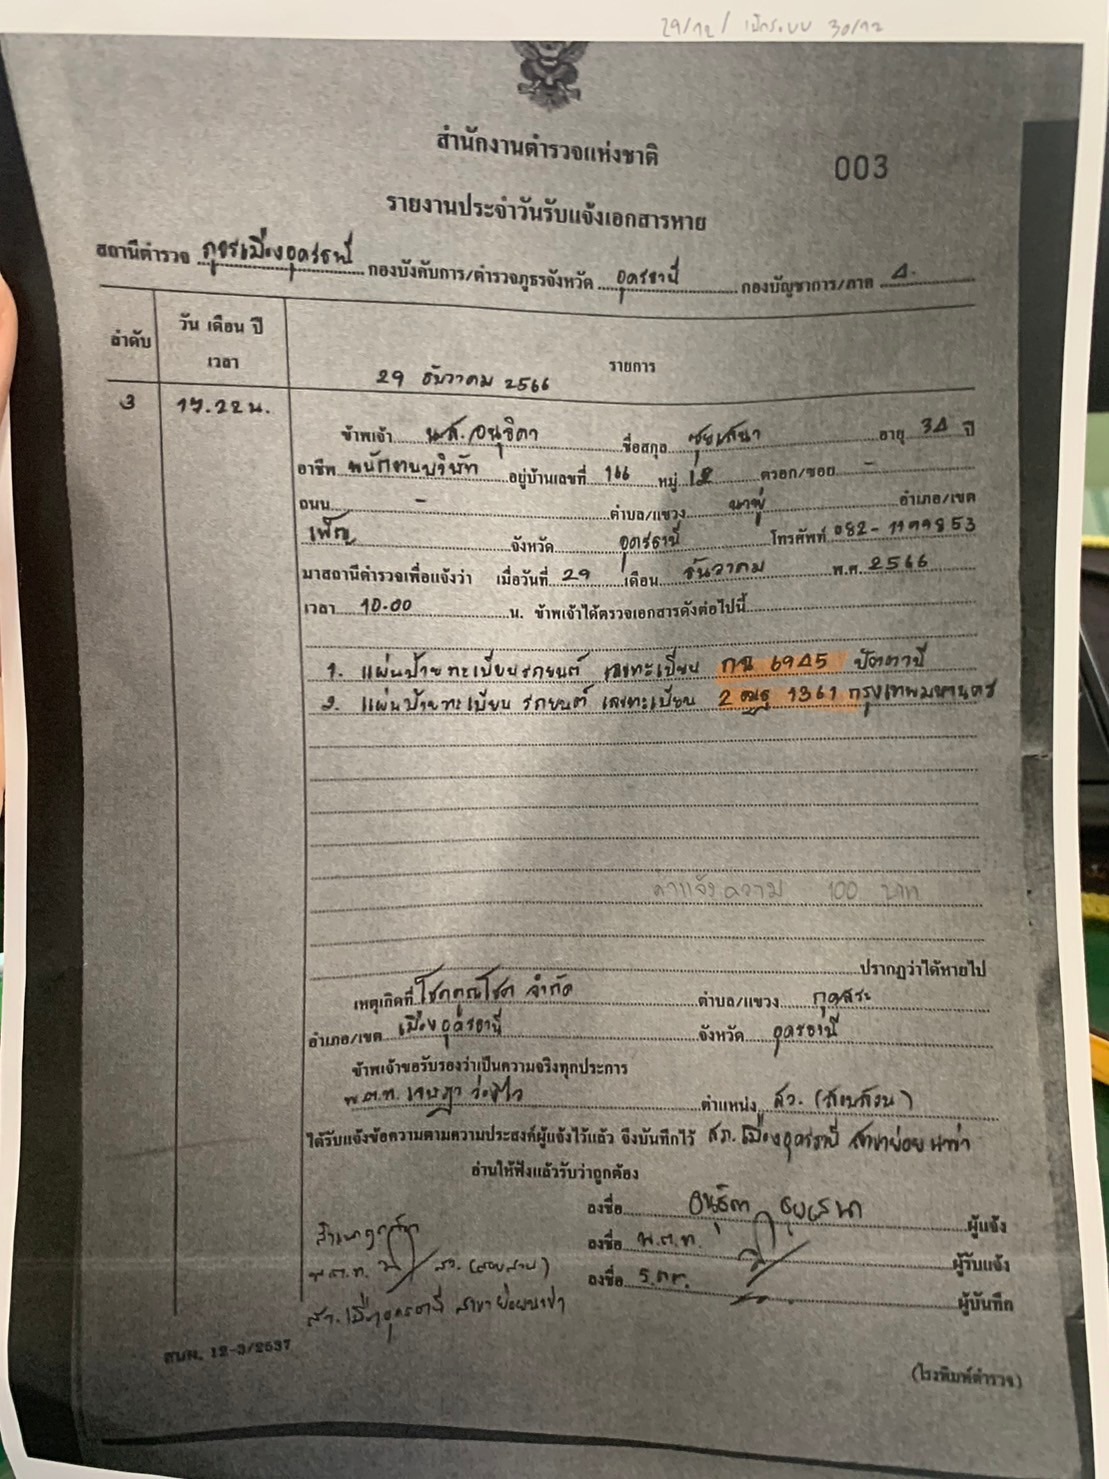 29/12/ เบิกระบบ 30/12
สำนักงานตำรวจแห่งชาติ
003
รายงานประจำวันรับแจ้งเอกสารหาย
สถานีตำรวจ ภูธรเมืองอุดรธานี กองบังคับการ/ตำรวจภูธรจังหวัด อุดรธานี กองบัญชาการ/ภาค 4.
ลำดับ วัน เดือน ปี เวลา รายการ
29 ธันวาคม 2566
3 17.22 น.
ข้าพเจ้า น.ส.อนุธิดา ชื่อสกุล ซุยเสนา อายุ 34 ปี
อาชีพ พนักงานบริษัท อยู่บ้านเลขที่ 166 หมู่ 12 ตรอก/ซอย -
ถนน - ตำบล/แขวง นาพู่ อำเภอ/เขต
เพ็ญ จังหวัด อุดรธานี โทรศัพท์ 082-1199853
มาสถานีตำรวจเพื่อแจ้งว่า เมื่อวันที่ 29 เดือน ธันวาคม พ.ศ. 2566
เวลา 10.00 น. ข้าพเจ้าได้ตรวจเอกสารดังต่อไปนี้
1. แผ่นป้ายทะเบียนรถยนต์ เลขทะเบียน กฉ 6945 ปัตตานี
2. แผ่นป้ายทะเบียน รถยนต์ เลขทะเบียน 2 ฒฐ 1361 กรุงเทพมหานคร
ค่าแจ้งความ 100 บาท
ปรากฏว่าได้หายไป
เหตุเกิดที่ โชคคูณโชค จำกัด ตำบล/แขวง กุดสระ
อำเภอ/เขต เมืองอุดรธานี จังหวัด อุดรธานี
ข้าพเจ้าขอรับรองว่าเป็นความจริงทุกประการ
พ.ต.ท. เจษฎา ตำแหน่ง สว. (สอบสวน)
ได้รับแจ้งข้อความตามความประสงค์ผู้แจ้งไว้แล้ว จึงบันทึกไว้ สภ.เมืองอุดรธานี สาขาย่อย นาข่า
อ่านให้ฟังแล้วรับว่าถูกต้อง
ลงชื่อ อนุธิดา ซุยเสนา ผู้แจ้ง
ลงชื่อ พ.ต.ท. ผู้รับแจ้ง
ลงชื่อ ร.ต.ต. ผู้บันทึก
สำเนาถูกต้อง
พ.ต.ท. สว. (สอบสวน)
สภ.เมืองอุดรธานี สาขาย่อยนาข่า
สบผ. 12-3/2537
(โรงพิมพ์ตำรวจ)